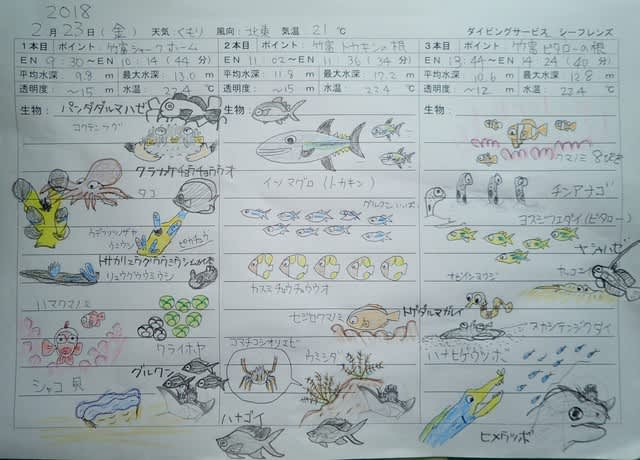 2018
2月23日(金) 天気 くもり 風向: 北東 気温 21℃ ダイビングサービス シーフレンズ
1本目 ポイント: 竹富シャークホーム
EN 9:30 〜 EX 10:14 (44分)
平均水深: 9.8m 最大水深: 13.0m
透明度: 〜15m 水温: 22.4℃
生物: パンダダルマハゼ
コクテンフグ
クラカケチョウチョウウオ
タコ
ウミウシ
ピカチュウ
リュウグウウミウシ
ハマクマノミ
クライホヤ
シャコ貝
グルクン
2本目 ポイント: 竹富 トカキンの根
EN 11:02 〜 EX 11:36 (34分)
平均水深: 11.8m 最大水深: 17.2m
透明度: 〜15m 水温: 22.4℃
生物:
イソマグロ (トカキン)
グルクン
カスミチョウチョウウオ
セジロクマノミ
コマチコシオリエビ
ウミシダ
ハナゴイ
3本目 ポイント: 竹富ビタローの根
EN 13:44 〜 EX 14:24 (40分)
平均水深: 10.6m 最大水深: 12.8m
透明度: 〜12m 水温: 22.4℃
生物:
クマノミ
チンアナゴ
ヨスジフエダイ (ビタロー)
ヤシャハゼ
トゲダルマガレイ
スカシテンジクダイ
ハナヒゲウツボ